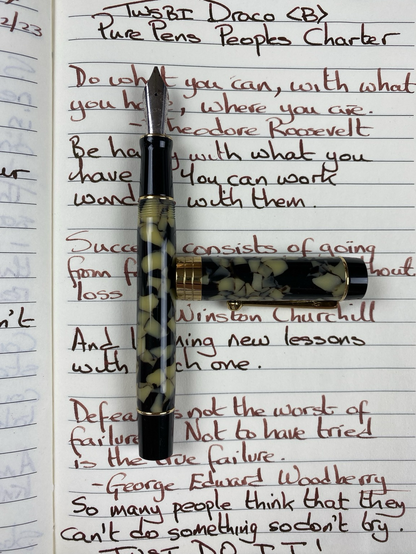 2/23
TWSBI Draco <B>
Pure Pens Peoples Charter
Do what you can, with what
you ha , where you are.
- Theodore Roosevelt
Be ha with what you
have You can work
wond with them.
Succe consists of going
from f hout
loss
Winston Churchill
And l ning new lessons
with ch one.
Defea is not the worst of
failure Not to have tried
is the true failure.
-George Edward Woodberry
So many people think that they
can't do something so don't try.
JUST DO IT!
ur
n't